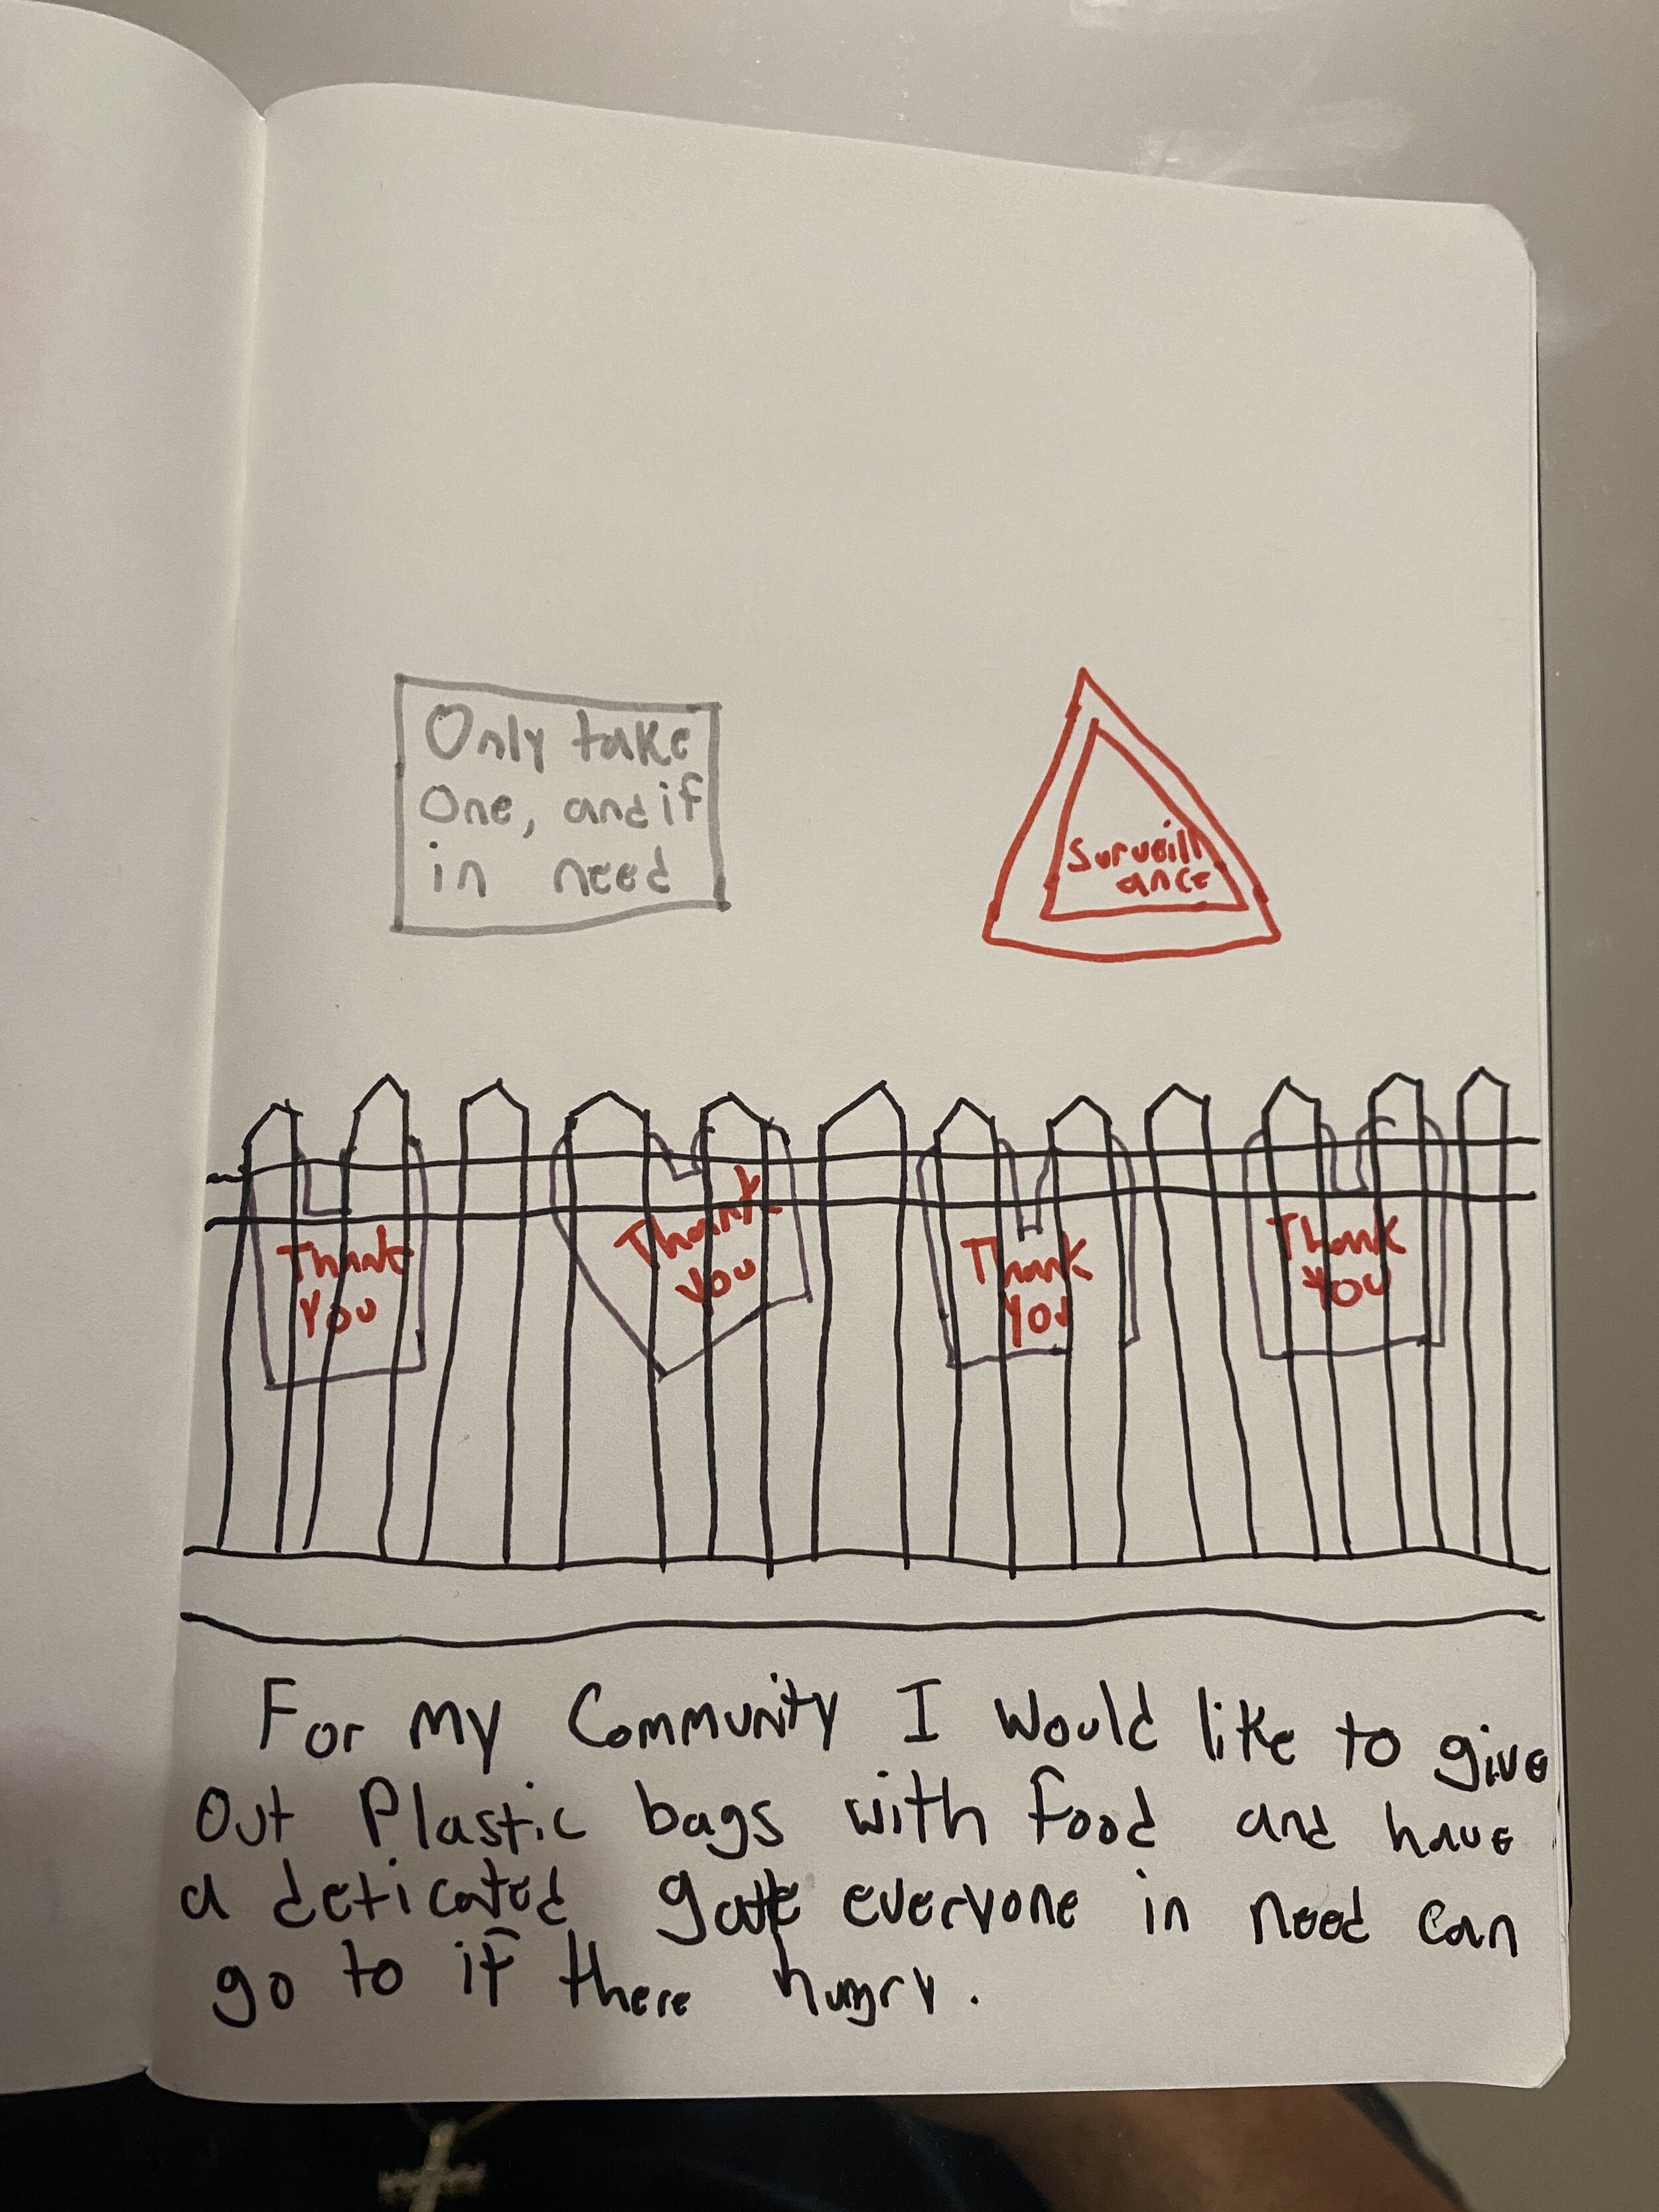 Only take
One, and if
in need
Surveill
ance
Thank
You
Thank
You
Thank
You
Thank
You
For my Community I Would like to give
Out Plastic bags with food and have
a deticated gate everyone in need can
go to if there hungry.